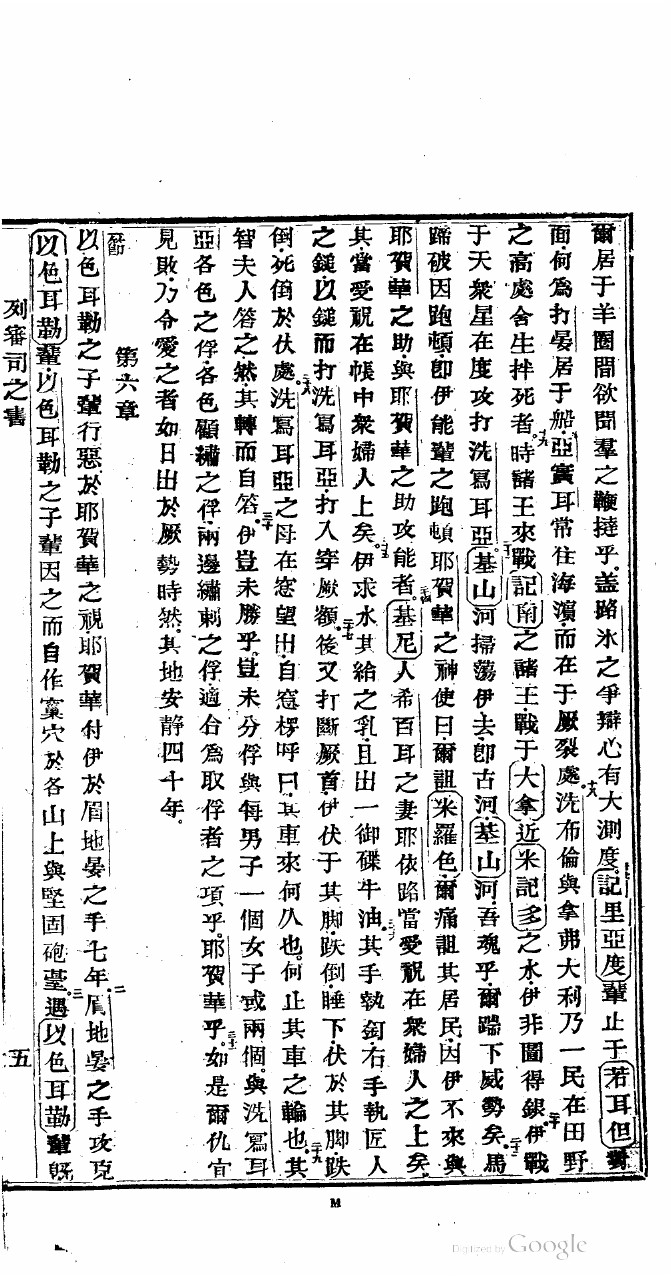 爾居于羊圈間欲聞羣之鞭撻乎。盖路氷之爭辯心有大測度。記里亞度輩止于若耳但對
面何為打晏居于船。亞實耳常住海濱而在于厥裂處。十八洗布倫與拿弗大利乃一民在田野
之高處舍生拌死者。十九時諸王來戰記南之諸王戰于大拿近米記多之水伊非圖得銀。二十伊戰
于天衆星在度攻打洗寫耳亞。二十一基山河掃蕩伊去卽古河基山河吾魂乎爾踹下威勢矣。二十二馬
蹄破因跑頓卽伊能輩之跑頓。耶賀華之神使曰爾詛米羅色爾痛詛其居民因伊不來與
耶賀華之助與耶賀華之助攻能者。二十四基尼人希百耳之妻耶依路當愛祝在衆婦人之上矣。
其當愛祝在帳中衆婦人上矣。二十五伊求水其給之乳且出一御碟牛油。二十六其手執釘右手執匠人
之鎚以鎚而打洗寫耳亞打入穿厥額後又打斷厥首。二十七伊伏于其脚跌倒睡下伏於其脚跌
倒死倒於伏處。二十八洗寫耳亞之母在窓望出自窓楞呼曰其車來何久也何止其車之輪也。二十九其
智夫人答之然其轉而自答。三十伊豈未勝乎豈未分俘與每男子一個女子或兩個與洗寫耳
亞各色之俘各色顧繡之俘兩邊繡刺之俘適合為取俘者之項乎。三十一耶賀華乎如是爾仇宜
見敗乃令愛之者如日出於厥勢時然其地安静四十年。
第六章
節
以色耳勒之子輩行惡於耶賀華之視耶賀華付伊於眉地晏之手七年。二眉地晏之手攻克
以色耳勒輩以色耳勒之子輩因之而自作窠穴於各山上與堅固砲臺。三遇以色耳勒輩既
列審司之書
五
M
Digitized by Google